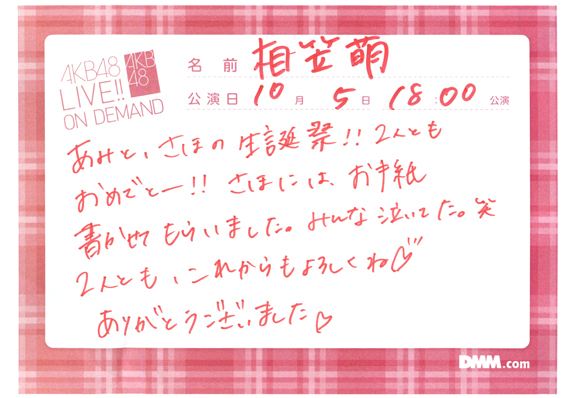 AKB48
LIVE!!
ON DEMAND
AKB
48
名前 相笠萌
公演日 10月 5日 18:00 公演
あみと、さほの生誕祭!! 2人とも
おめでとー!! さほには、お手紙
書かせてもらいました。みんな泣いてた。笑
2人とも、これからもよろしくね♡
ありがとうございました♡
DMM.com